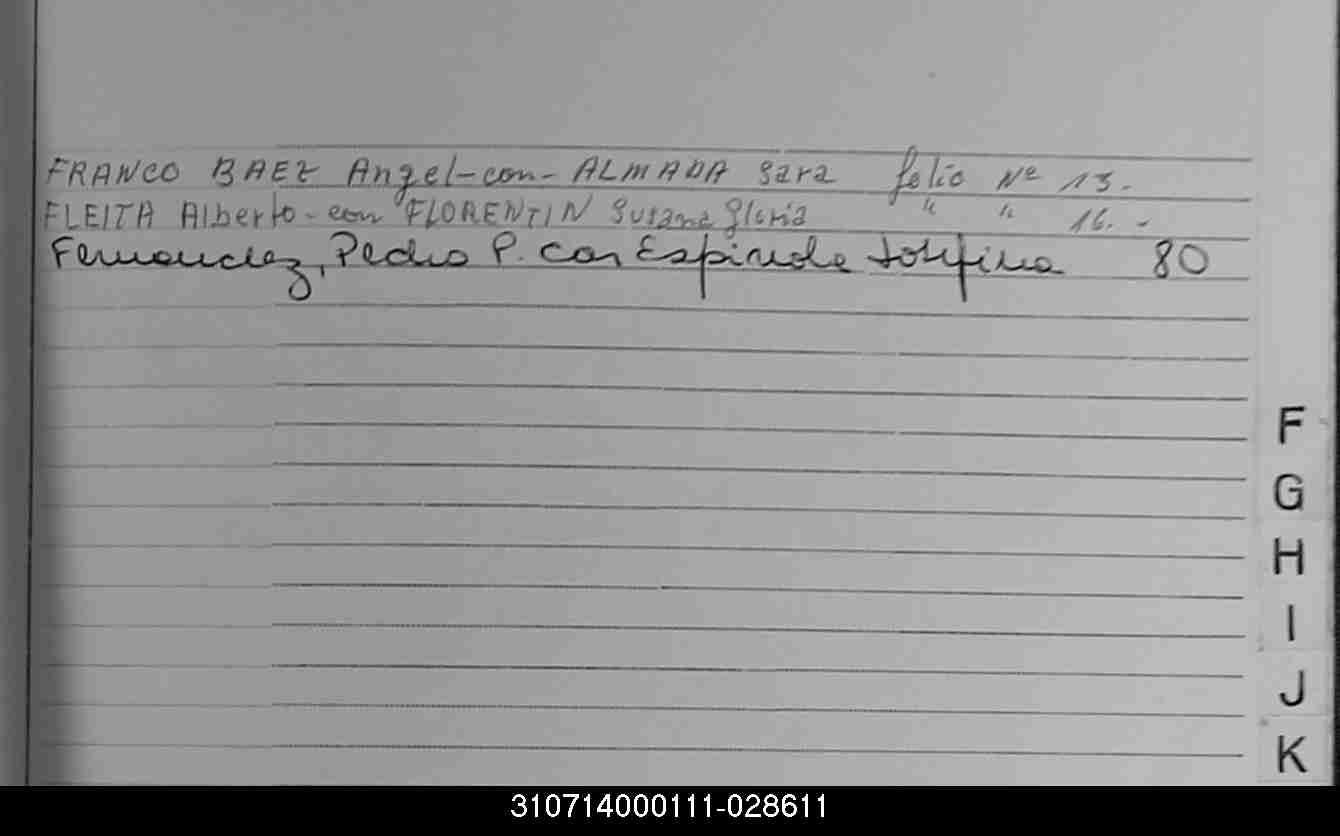 FRANCO BAEZ Angel-con-ALMADA Sara folio Nº 13.-
FLEITA Alberto-con FLORENTIN Susana Gloria " " 16.-
Fernandez, Pedro P. con Espinola Josefina 80
F
G
H
I
J
K
310714000111-028611